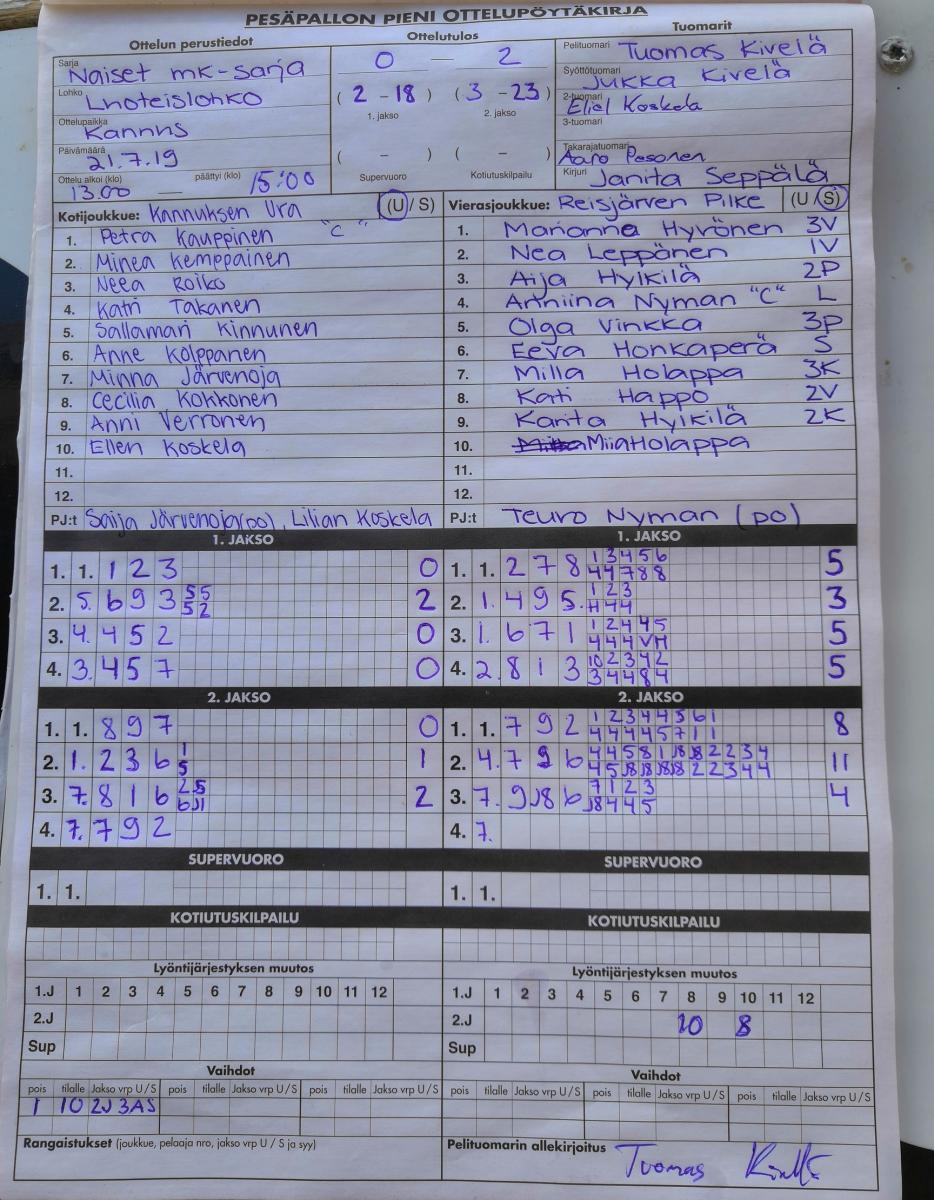 PESÄPALLON PIENI OTTELUPÖYTÄKIRJA
Ottelun perustiedot
Sarja Naiset mk-sarja
Lohko Lohoteislohko
Ottelupaikka Kannus
Päivämäärä 21.7.19
Ottelu alkoi (klo) 13.00 — päättyi (klo) 15:00
Ottelutulos
0 — 2
( 2 - 18 ) ( 3 - 23 )
1. jakso 2. jakso
( - ) ( - )
Supervuoro Kotiutuskilpailu
Tuomarit
Pelituomari Tuomas Kivelä
Syöttötuomari Jukka Kivelä
2-tuomari Eliel Koskela
3-tuomari
Takarajatuomari Aaro Pesonen
Kirjuri Janita Seppälä
Kotijoukkue: Kannuksen Ura (U / S)
1. Petra Kauppinen "C"
2. Minea Kemppainen
3. Neea Roiko
4. Katri Takanen
5. Sallamari Kinnunen
6. Anne Kolppanen
7. Minna Järvenoja
8. Cecilia Kokkonen
9. Anni Verronen
10. Ellen Koskela
11.
12.
PJ:t Saija Järvenoja(po), Lilian Koskela
Vierasjoukkue: Reisjärven Pilke (U / S)
1. Marianna Hyvönen 3V
2. Nea Leppänen 1V
3. Aija Hylkilä 2P
4. Anniina Nyman "C" L
5. Olga Vinkka 3P
6. Eeva Honkaperä S
7. Milla Holappa 3K
8. Kati Happo 2V
9. Karita Hylkilä 2K
10. Miia Holappa
11.
12.
PJ:t Teuvo Nyman (po)
1. JAKSO
1. 1. 1 2 3 0
2. 5. 6 9 3 5 5 2
5 2
3. 4. 4 5 2 0
4. 3. 4 5 7 0
2. JAKSO
1. 1. 8 9 7 0
2. 1. 2 3 6 1 1
5
3. 7. 8 1 6 2 5 2
6
4. 7. 7 9 2
SUPERVUORO
1. 1.
KOTIUTUSKILPAILU
1. JAKSO
1. 1. 2 7 8 1 3 4 5 6 5
4 4 7 8 8
2. 1. 4 9 5 . 1 2 3 3
4 4
3. 1. 6 7 1 1 2 4 4 5 5
4 4 4 V H
4. 2. 8 1 3 10 2 3 4 2 5
3 4 4 8 4
2. JAKSO
1. 1. 7 9 2 1 2 3 4 4 5 6 1 8
4 4 4 4 5 7 1 1
2. 4. 7 9 6 4 4 5 8 1 2 2 3 4 11
4 5 2 2 3 4 4
3. 7. 9 6 7 1 2 3 4
4 4 5
4. 7.
SUPERVUORO
1. 1.
KOTIUTUSKILPAILU
Lyöntijärjestyksen muutos
1.J 1 2 3 4 5 6 7 8 9 10 11 12
2.J
Sup
Lyöntijärjestyksen muutos
1.J 1 2 3 4 5 6 7 8 9 10 11 12
2.J 10 8
Sup
Vaihdot
pois tilalle Jakso vrp U / S pois tilalle Jakso vrp U / S pois tilalle Jakso vrp U / S
1 10 2J 3AS
Rangaistukset (joukkue, pelaaja nro, jakso vrp U / S ja syy)
Vaihdot
pois tilalle Jakso vrp U / S pois tilalle Jakso vrp U / S pois tilalle Jakso vrp U / S
Pelituomarin allekirjoitus Tuomas